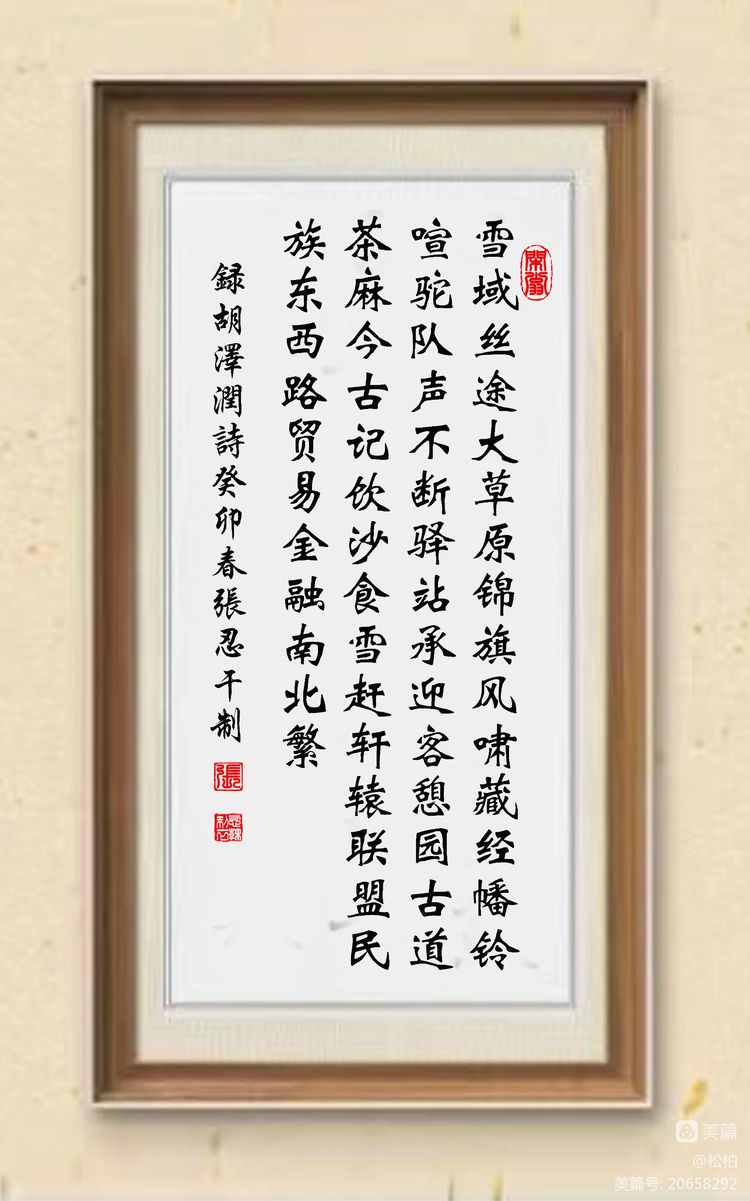 雪域丝途大草原锦旗风啸藏经幡铃
喧驼队声不断驿站承迎客憩园古道
茶麻今古记饮沙食雪赶轩辕联盟民
族东西路贸易金融南北繁
録胡澤潤詩癸卯春張忍干制
張
美篇
@松柏
美篇号: 20658292